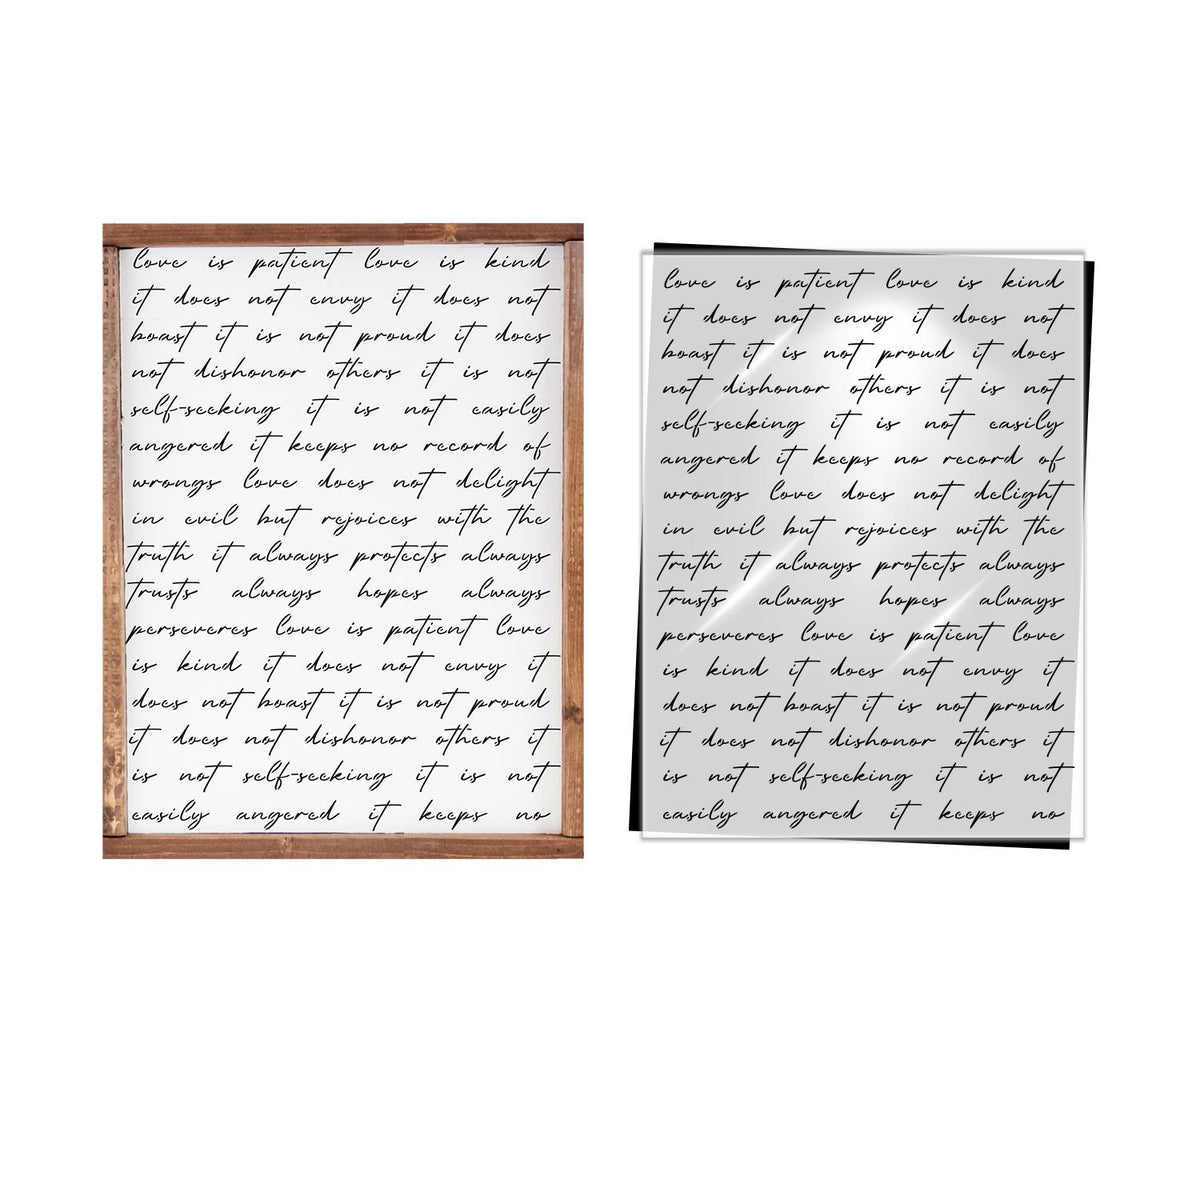 love is patient love is kind
it does not envy it does not
boast it is not proud it does
not dishonor others it is not
self-seeking it is not easily
angered it keeps no record of
wrongs love does not delight
in evil but rejoices with the
truth it always protects always
trusts always hopes always
perseveres love is patient love
is kind it does not envy it
does not boast it is not proud
it does not dishonor others it
is not self-seeking it is not
easily angered it keeps no
love is patient love is kind
it does not envy it does not
boast it is not proud it does
not dishonor others it is not
self-seeking it is not easily
angered it keeps no record of
wrongs love does not delight
in evil but rejoices with the
truth it always protects always
trusts always hopes always
perseveres love is patient love
is kind it does not envy it
does not boast it is not proud
it does not dishonor others it
is not self-seeking it is not
easily angered it keeps no